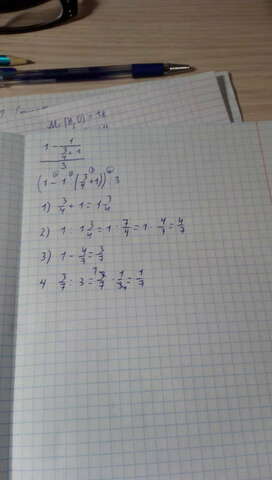 1 - 1
3/4 + 1
3
(1 - 1 : (3/4 + 1)) : 3
1) 3/4 + 1 = 1 3/4
2) 1 : 1 3/4 = 1 : 7/4 = 1 · 4/7 = 4/7
3) 1 - 4/7 = 3/7
4 3/7 : 3 = 3/7 · 1/3 = 1/7